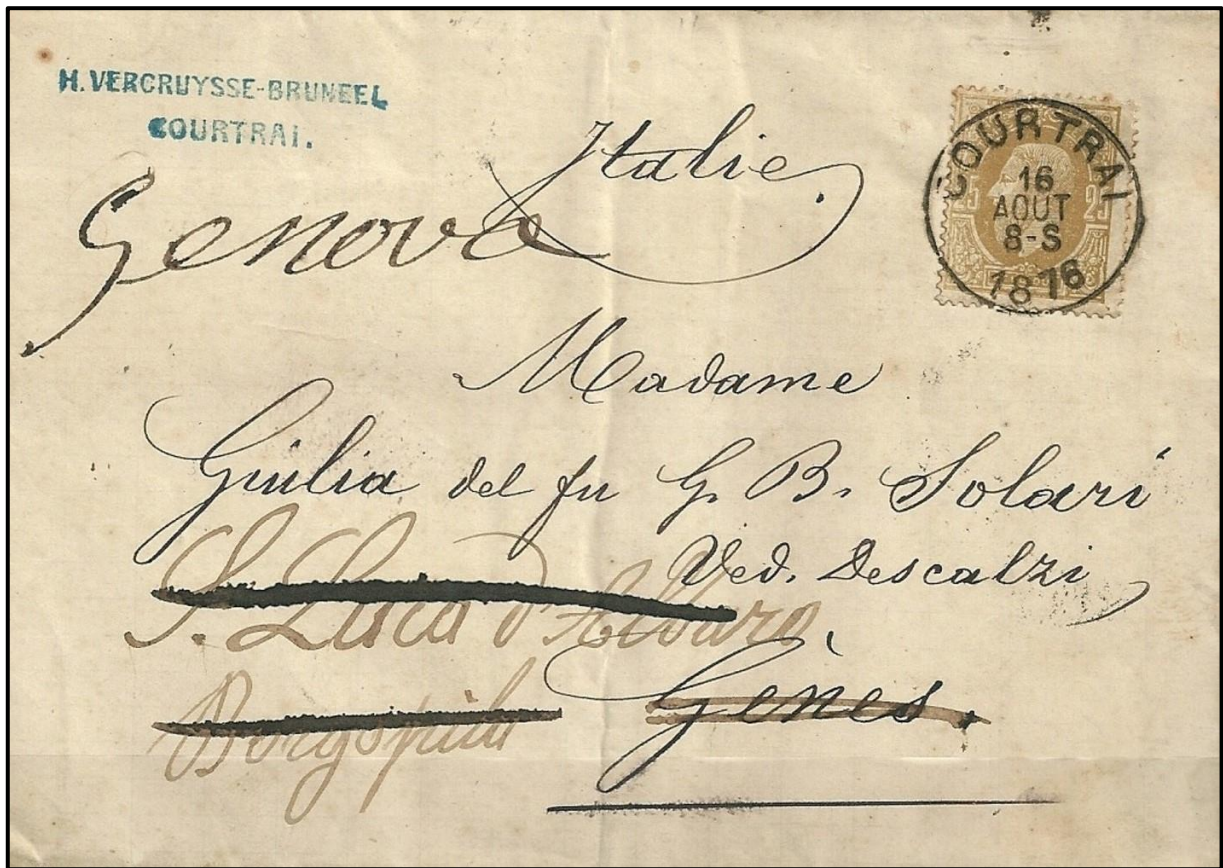 H. VERCRUYSSE-BRUNEEL
COURTRAI.
Italie.
Genova
COURTRAI
16
AOUT
8-S
1876
25 25
Madame
Giulia del fu G. B. Solari
Ved. Descalzi
S. Luca d'Albaro
Gênes.